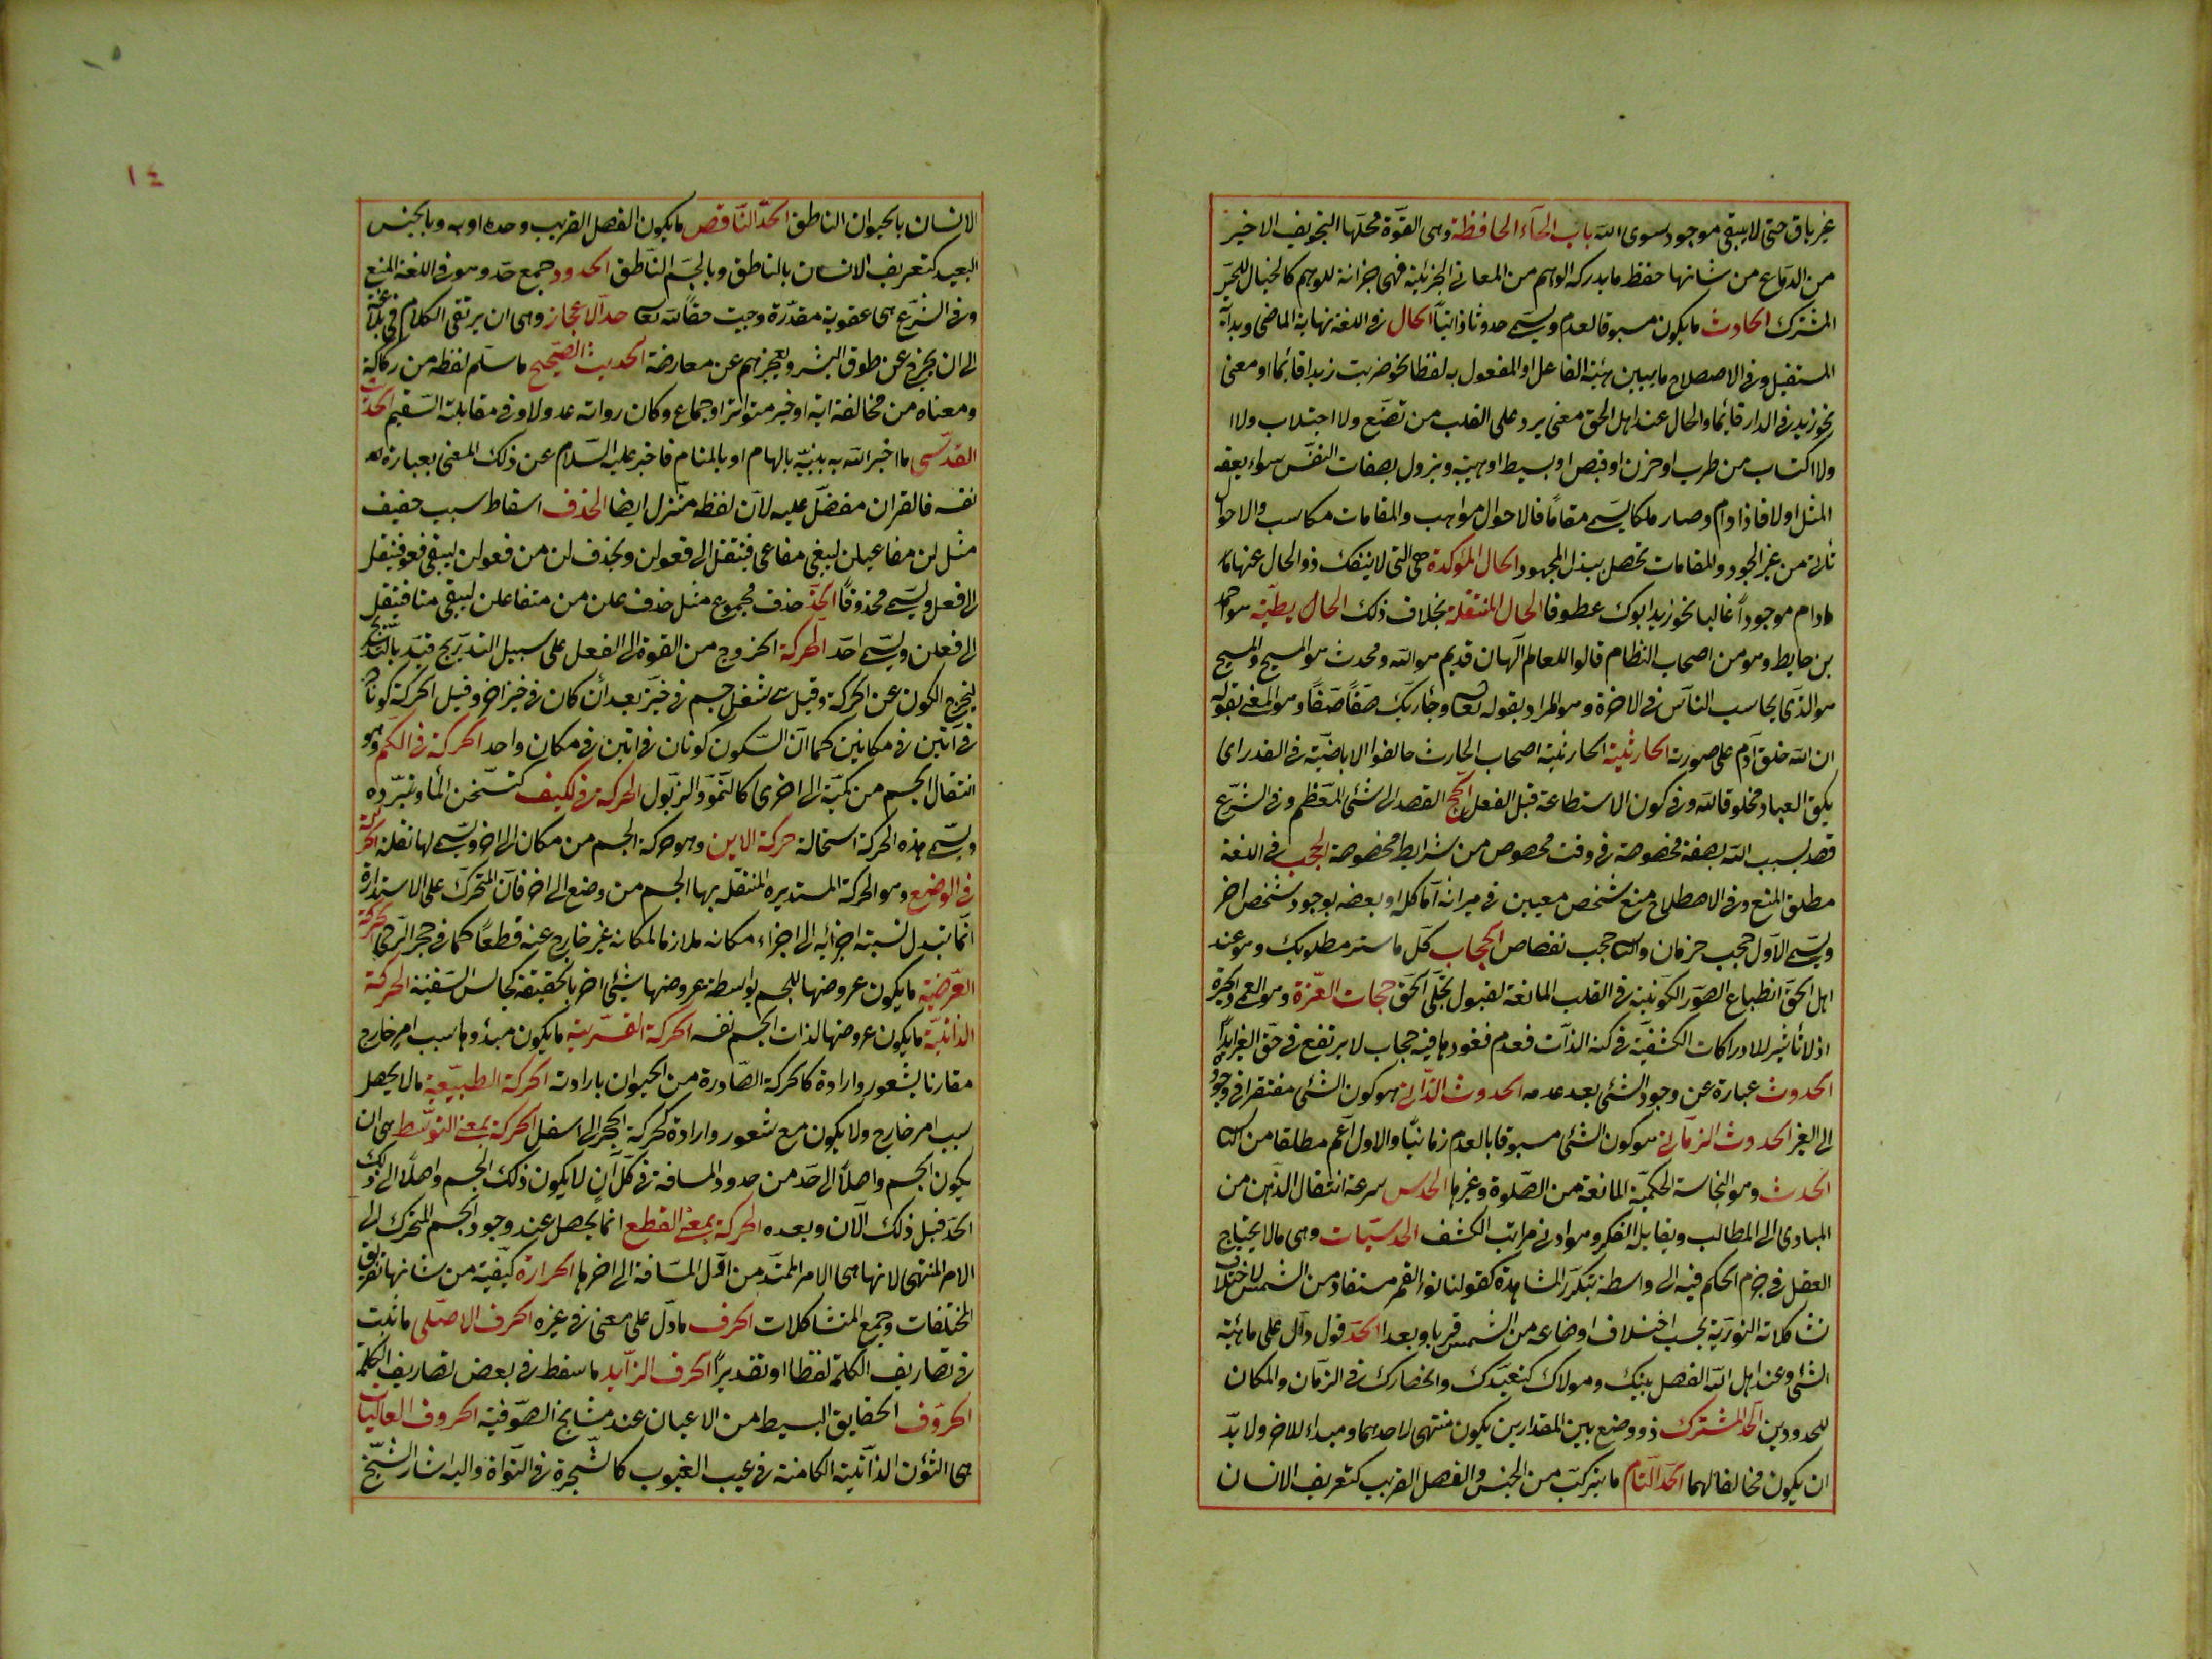 غير باق حتى لا يبقى موجود سوى الله باب الحآء الحافظة وهى القوّة محلّها التجويف الاخير
من الدماغ من شانها حفظ ما يدركه الوهم من المعانى الجزئية فهى خزانة للوهم كالخيال للحسّ
المشترك الحادث ما يكون مسبوقا لعدم ويسمّى حدوثا ذاتيّاً الحال فى اللغة نهاية الماضى وبداية
المستقبل وفى الاصطلاح ما يبين هيئة الفاعل او المفعول به لفظا نحو ضربت زيدا قائما او معنى
نحو زيد فى الدار قائما والحال عند اهل الحق معنى يرد على القلب من تصنّع ولا اجتلاب ولا
ولا اكتساب من طرب او حزن او قبض او بسط او هيبة ويزول بصفات النفس سواء يعقبه
المثل او لا فاذا دام وصار ملكا يسمى مقاماً فالاحوال مواهب والمقامات مكاسب والاحوال
تأتى من غير الجود والمقامات تحصل ببذل المجهود الحال المؤكدة هى التى لا ينفك ذو الحال عنها
مادام موجوداً غالبا نحو زيد ابوك عطوفا الحال المنتقلة بخلاف ذلك الحال بطيّة هو احمد
بن حايط وهو من اصحاب النظام قالوا للعالم آلهان قديم هو الله ومحدث هو المسيح والمسيح
هو الذى يحاسب الناس فى الاخرة وهو المراد بقوله تعالى وجاء ربّك صفّاً صفّاً وهو المعنى بقوله
ان الله خلق آدم على صورته الحارثية الحارثية اصحاب الحارث خالفوا الاباضيّة فى القدر اى
يكون العباد مخلوقا لله وفى كون الاستطاعة قبل الفعل الحج القصد الى شئ المعظم وفى الشرع
قصد لبيت الله بصفة مخصوصة فى وقت مخصوص من شرايط مخصوصة الحجب فى اللغة
مطلق المنع وفى الاصطلاح منع شخص معيين فى ميراثه اما كله او بعضه بوجود شخص اخر
ويسمى الاوّل حجب حرمان والثانى حجب نقصان الحجاب كل ما ستر مطلوبك وهو عند
اهل الحقّ انطباع الصوّر الكونيّة فى القلب المانعة لقبول تجلّى الحق حجاب العزّة وهو العمى والحيرة
اذ لا تأثير للادراكات الكشفيّة فى كنه الذآت فعدم نفوذها فيه حجاب لا يرتفع فى حق الغير ابداً
الحدوث عبارة عن وجود الشئ بعد عدمه الحدوث الذآتى هو كون الشئ مفتقرا فى وجوده
الى الغير الحدوث الزمآنى هو كون الشئ مسبوقا بالعدم زمانيّاً والاول اعم مطلقا من الثانى
الحدث وهو النجاسة الحكميّة المانعة من الصّلوة وغيرها الحدس سرعة انتقال الذهن من
المبادى الى المطالب ويقابله الفكر وهو ادنى مراتب الكشف الحدسيّات وهى ما لا يحتاج
العقل فى جزم الحكم فيه الى واسطة بتكرر المشاهدة كقولنا نور القمر مستفاد من الشمس لاختلاف
تشاكلاته النوريّة بحسب اختلاف اوضاعه من الشمس قربا وبعدا الحدّ قول دآل على ماهيّة
الشئ وعند اهل الله الفصل بينك ومولاك كتعبّدك وانحصارك فى الزمان والمكان
المحدودين الحدّ المشترك ذو وضع بين المقدارين يكون منتهى لاحدهما ومبداء للاخر ولا بدّ
ان يكون مخالفا لهما الحدّ التام ما يتركبّ من الجنس والفصل القريب كتعريف الانسان
١٤
الانسان بالحيوان الناطق الحدّ النّاقص ما يكون الفصل القريب وحده او به وبالجنس
البعيد كتعريف الانسان بالناطق وبالجسم النّاطق الحدود جمع حدّ وهو فى اللغة المنع
وفى الشّرع هى عقوبة مقدّرة وجبت حقاً لله تعالى حدّ الاعجاز وهى ان يرتقى الكلام فى بلاغته
الى ان يخرج عن طوق البشر ويعجزهم عن معارضة الحديث الصّحيح ما سلم لفظه من ركاكة
ومعناه من مخالفة اية او خبر متواتر او جماع وكان رواته عدولا وفى مقابلته السّقيم الحديث
القدسّى ما اخبر الله به نبيّه بالهام او بالمنام فاخبر عليه السّلام عن ذلك المعنى بعبارة
نفسه فالقران مفضّل عليه لآن لفظه منزل ايضا الحذف اسقاط سبب خفيف
مثل لن مفاعيلن ليبقى مفاعى فينقل الى فعولن ويحذف لن من فعولن ليبقى فعو فينقل
الى فعل ويسمى محذوفاً الحذذ حذف مجموع مثل حذف علن من متفاعلن ليبقى متفا فينقل
الى فعلن ويسمّى احذّ الحركة الخروج من القوة الى الفعل على سبيل التدّريج قيّد بالتدريج
ليخرج الكون عن الحركة وقيل هى شغل جسم فى حيّز بعد أن كان فى حيز اخر وقيل الحركة كونان
فى آنين فى مكانين كما انّ السّكون كونان فى انين فى مكان واحد الحركة فى الكم وهو
انتقال الجسم من كميّة الى اخرى كالنّموّ والذبول الحركة فى الكيف كتسّخن المأ وتبرّده
ويسمّى هذه الحركة استحالة حركة الاين وهو حركة الجسم من مكان الى اخر ويسمى لها نقلة الحركة
فى الوضع وهو الحركة المستديره المنتقلة بها الجسم من وضع الى اخر فآن المتحرّك على الاستدارة
انّما تتبدل نسبة اجزائه الى اجزاء مكانه ملازما لمكانه غير خارج عنه قطعاً كما فى حجر الرّحى الحركة
العرّضية ما يكون عروضها للجسم بواسطة عروضها لشئ اخر بالحقيقة كجالس السّفينة الحركة
الذاتيّة ما يكون عروضها لذات الجسم نفسه الحركة القسّرية ما يكون مبدؤها بسبب امر خارج
مقارنا بشعور وارادة كالحركة الصّادرة من الحيوان بارادته الحركة الطبيّعية ما لا يحصل
بسبب امر خارج ولا يكون مع شعور وارادة كحركة الحجر الى اسفل الحركة بمعنى التوّسط هى ان
يكون الجسم واصلاً الى حدّ من حدود المسافة فى كلّ آن لا يكون ذلك الجسم واصلاً الى ذلك
الحدّ قبل ذلك الآن وبعده الحركة بمعنى القطع انما يحصل عند وجود الجسم المتحرك الى
الامر المنتهى لانها هى الامر الممتدّ من اوّل المسّافة الى اخرها الحرارة كيفيّة من شانها تفريق
المختلفات وجمع المتشاكلات الحرف ما دلّ على معنى فى غيره الحرف الاصلّى ما ثبت
فى تصاريف الكلمة لفظا او تقديراً الحرف الزّايد ما سقط فى بعض تصاريف الكلمة
الحروّف الحقايق البسيط من الاعيان عند مشايخ الصوّفية الحروف العاليات
هى الشؤن الذاتّية الكامنة فى غيب الغيوب كالشّجرة فى النّواة واليه اشار الشّيخ